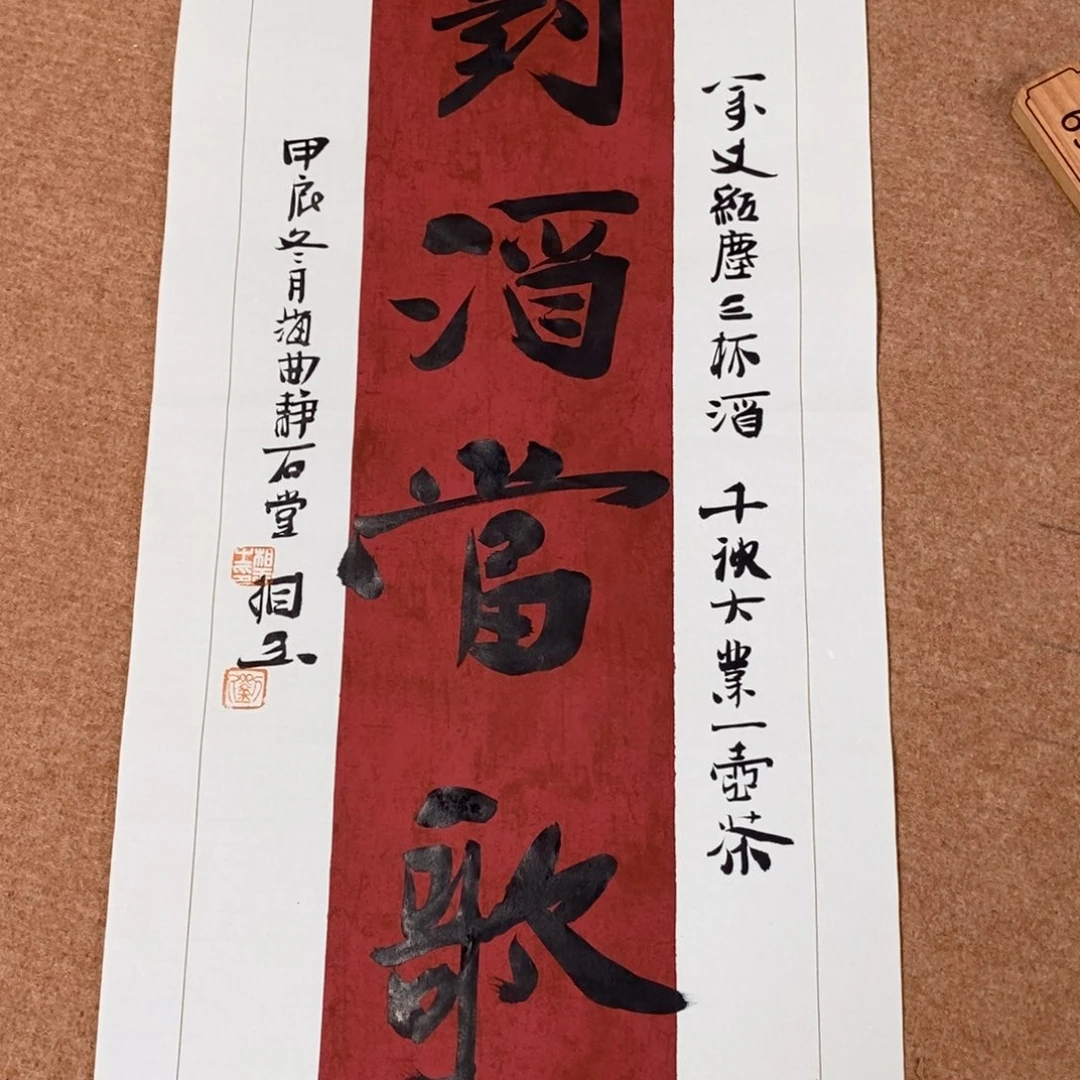 萬丈紅塵三杯酒 千秋大業一壺茶
對酒當歌
甲辰冬月海曲静石堂 相玉